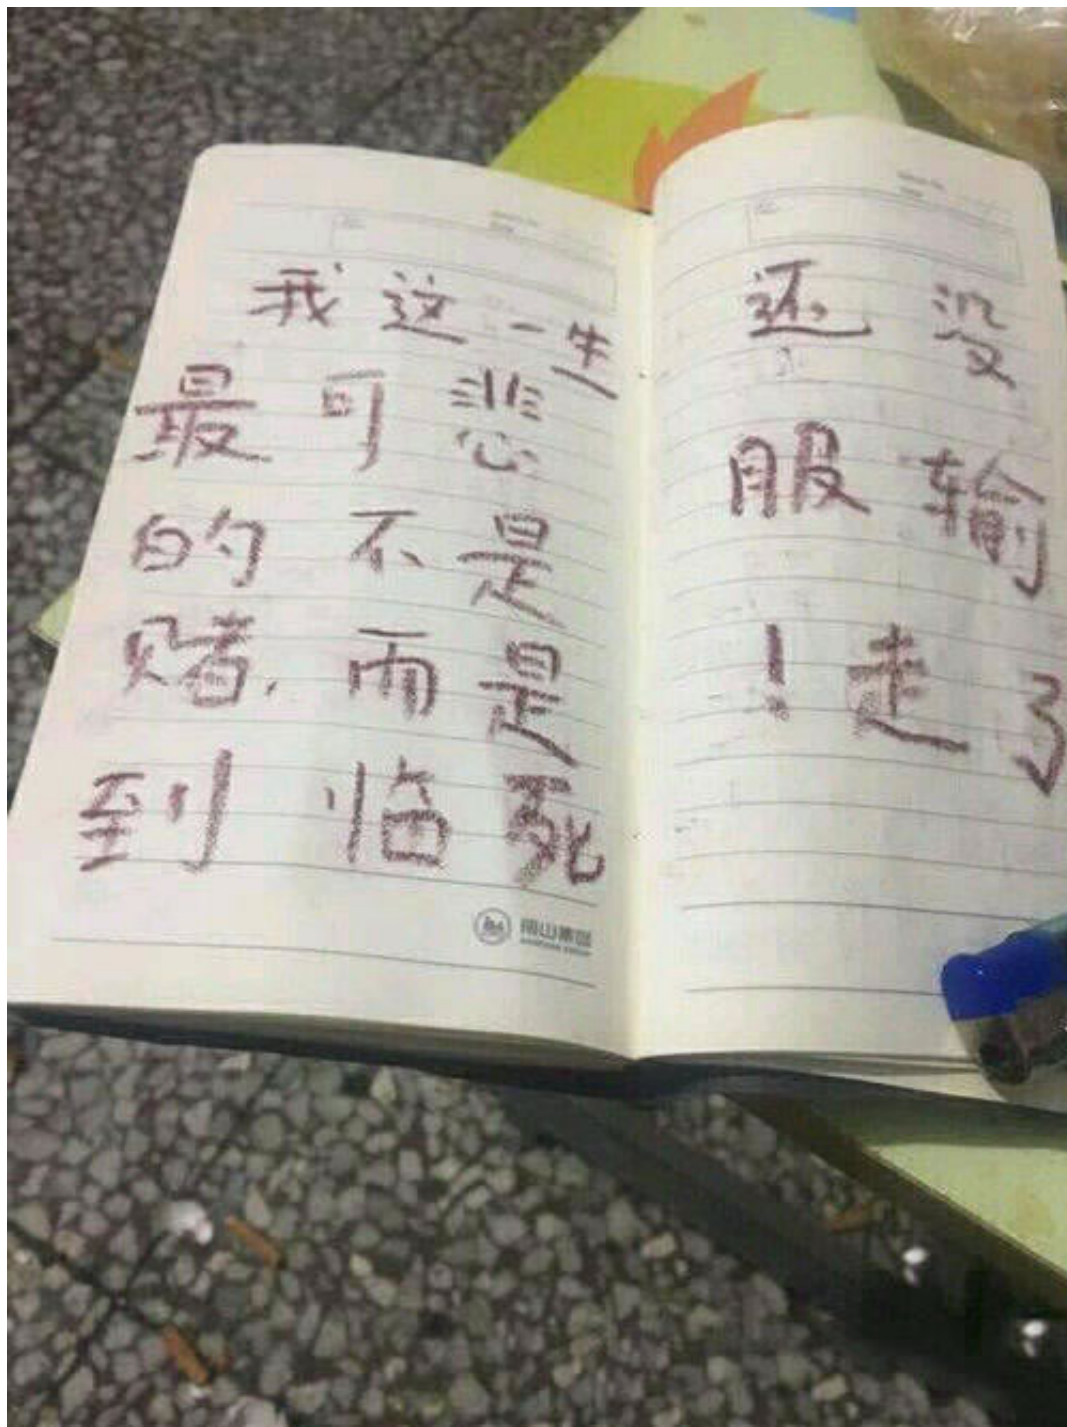 我这一生
最可悲
的不是
赌,而是
到临死
南山集团
还没
服输
！走了